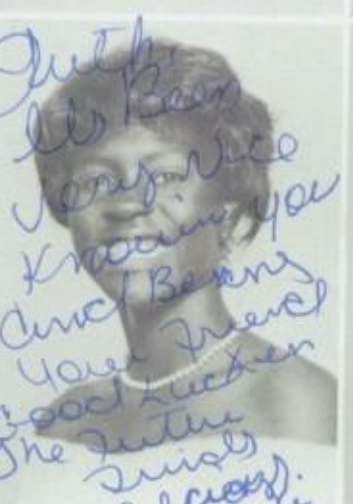 Ruth,
Its Been
Very Nice
Knowin you
And Being
Your Friend
Good Luck in
The Future
Friends